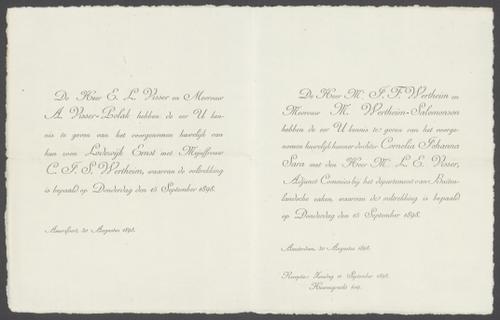 De Heer E. L. Visser en Mevrouw
A. Visser-Polak hebben de eer U ken-
nis te geven van het voorgenomen huwelijk van
hun zoon Lodewijk Ernst met Mejuffrouw
C. J. S. Wertheim, waarvan de voltrekking
is bepaald op Donderdag den 15 September 1898.
Amersfoort, 30 Augustus 1898.
De Heer M. J. F. Wertheim en
Mevrouw M. Wertheim-Salomonson
hebben de eer U kennis te geven van het voorge-
nomen huwelijk hunner dochter Cornelia Johanna
Sara met den Heer M. L. E. Visser,
Adjunct Commies bij het departement van Buiten-
landsche zaken, waarvan de voltrekking is bepaald
op Donderdag den 15 September 1898.
Amsterdam, 30 Augustus 1898.
Receptie: Zondag 11 September 1898.
Heerengracht